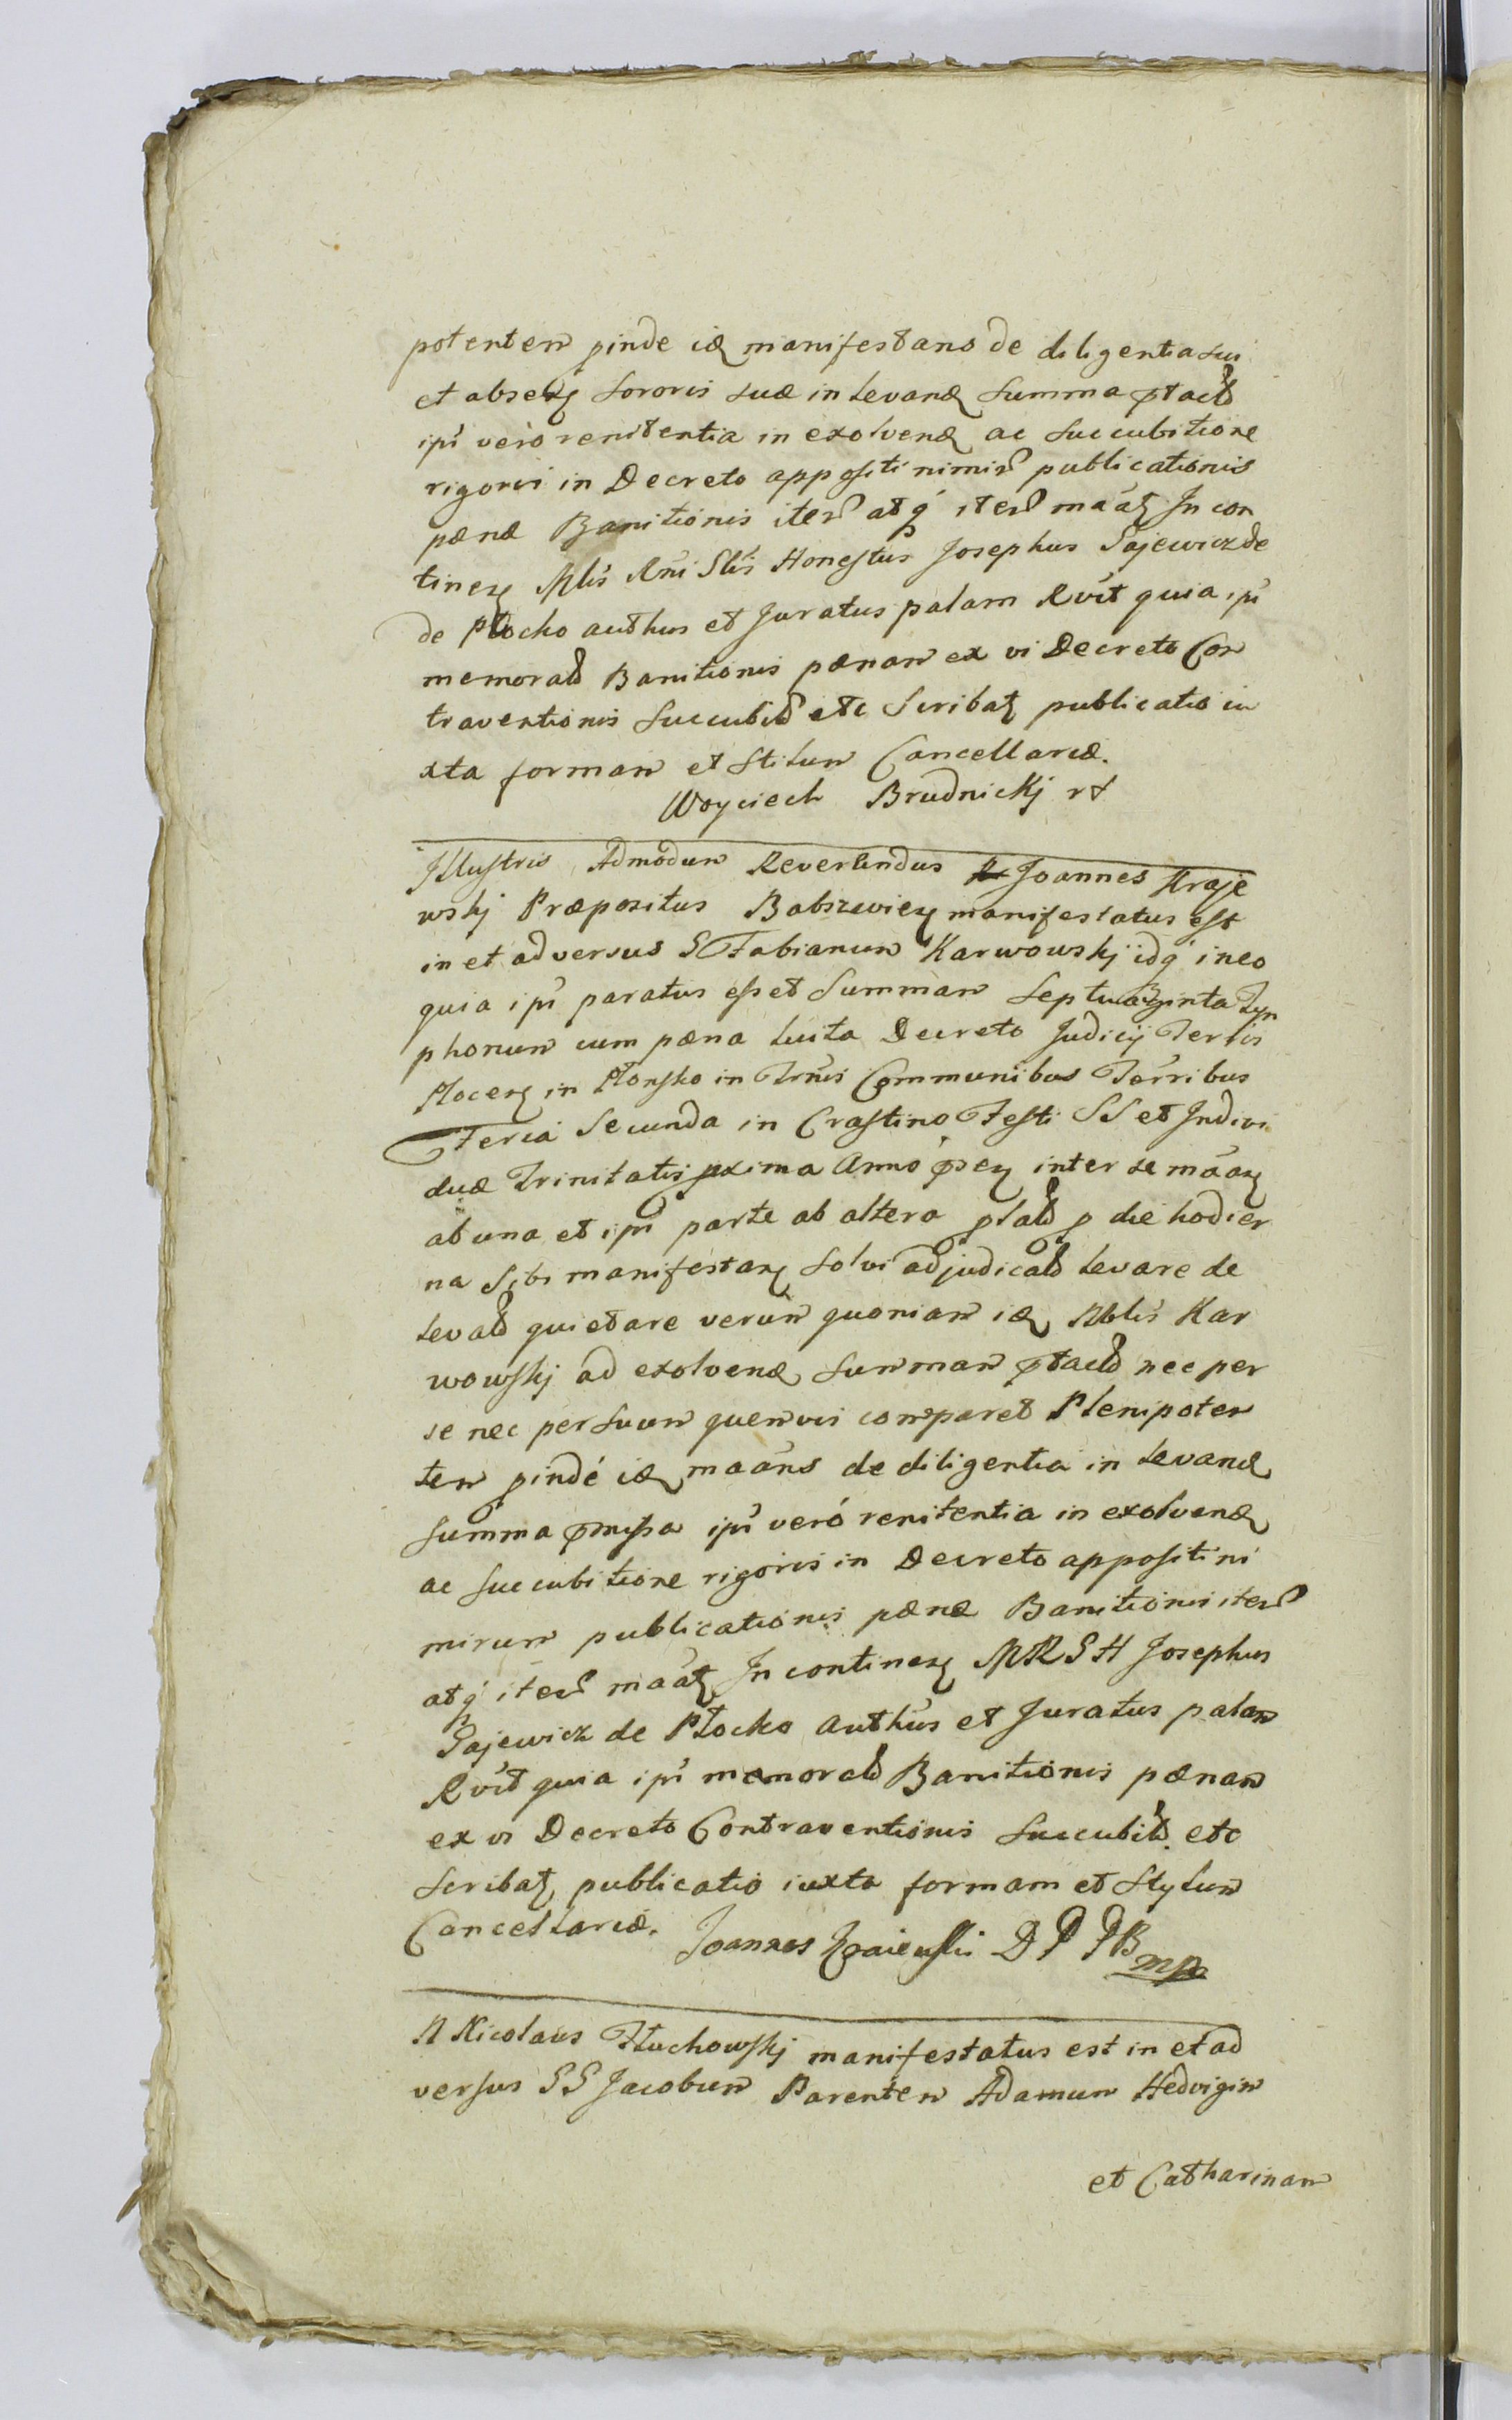 potentem pinde idem manifestans de diligentia sui
et absen sororis suæ in levand summa præact
ipi vero renitentia in exolvend ac succubitione
rigoris in Decreto appositi nimir publicationis
pænæ Banitionis iter atq iter maat In con
tinen Mlis Rni Slis Honestus Josephus Gajewicz de
de Płocko authus et Juratus palam Rvit quia ipi
memorat Banitionis pænam ex vi Decreto Con
traventionis succubit etc Scribat publicatio iu
xta formam et stilum Cancellariæ.
Woyciech Brudnickj rt
Illustris Admodum Reverendus Joannes Kraje
wskj Præpositus Babszevien manifestatus est
in et adversus G Fabianum Karwowskj idq in eo
quia ipi paratus esset summam septuaginta Tyn
phonum cum pæna luita Decreto Judicij Terris
Plocen in Płonsko in Trnis Communibus Terribus
Feria Secunda in Crastino Festi SS et Indivi
duæ Trinitatis pxima Anno præsen inter se maan
ab una et ipi parte ab altera plat p die hodier
na sibi manifestan solvi adjudicat levare de
levat quietare verum quoniam idem Nblis Kar
wowskj ad exolvend summam præact nec per
se nec per suum quemvis comparet Plenipoten
tem pinde idem maans de diligentia in levand
summa præmissa ipi veró renitentia in exolvend
ac succubitione rigoris in Decreto appositi ni
mirum publicationis pænæ Banitionis iter
atq iter maat In continen MRSH Josephus
Gajewicz de Płocko Authus et Juratus palam
Rvit quia ipi memorat Banitionis pænam
ex vi Decreto Contraventionis succubit etc
Scribat publicatio iuxta formam et Stylum
Cancellariæ. Joannes Kraiewski D P P B mp
N Nicolaus Tłuchowskj manifestatus est in et ad
versus GG Jacobum Parentem Adamum Hedvigim
et Catharinam